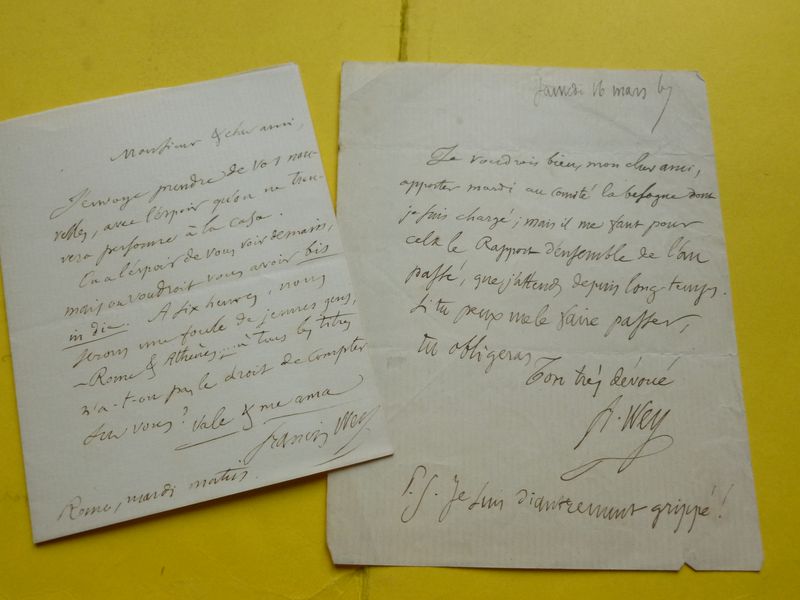 Monsieur & cher ami,
J'envoye prendre de vos nou-
velles, avec l'espoir qu'on ne trou-
vera personne à la casa.
On a l'espoir de vous voir demain,
mais on voudrait vous avoir bis
in die. A six heures, nous
serons une foule de jeunes gens,
Rome & Athènes... à tous les titres
n'a-t-on pas le droit de compter
sur vous? Vale & me ama
Francis Wey
Rome, mardi matin.
Samedi 16 mars 67
Je voudrais bien, mon cher ami,
apporter mardi au comité la besogne dont
je suis chargé; mais il me faut pour
cela le Rapport d'ensemble de l'an
passé, que j'attends depuis long-temps.
Si tu peux me le faire passer,
tu obligeras
Ton très dévoué
F. Wey
P.S. Je suis diantrement grippé!